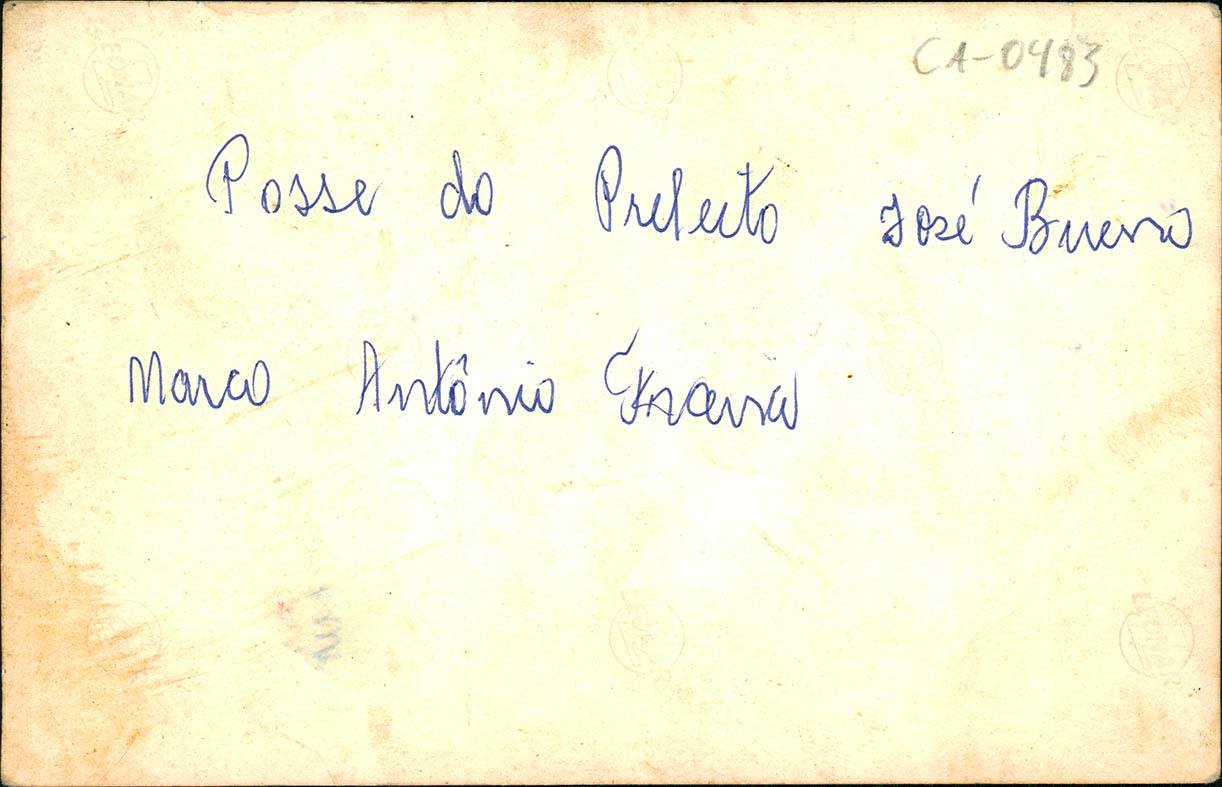 CA-0483
Posse do Prefeito José Bueno
Marco Antônio